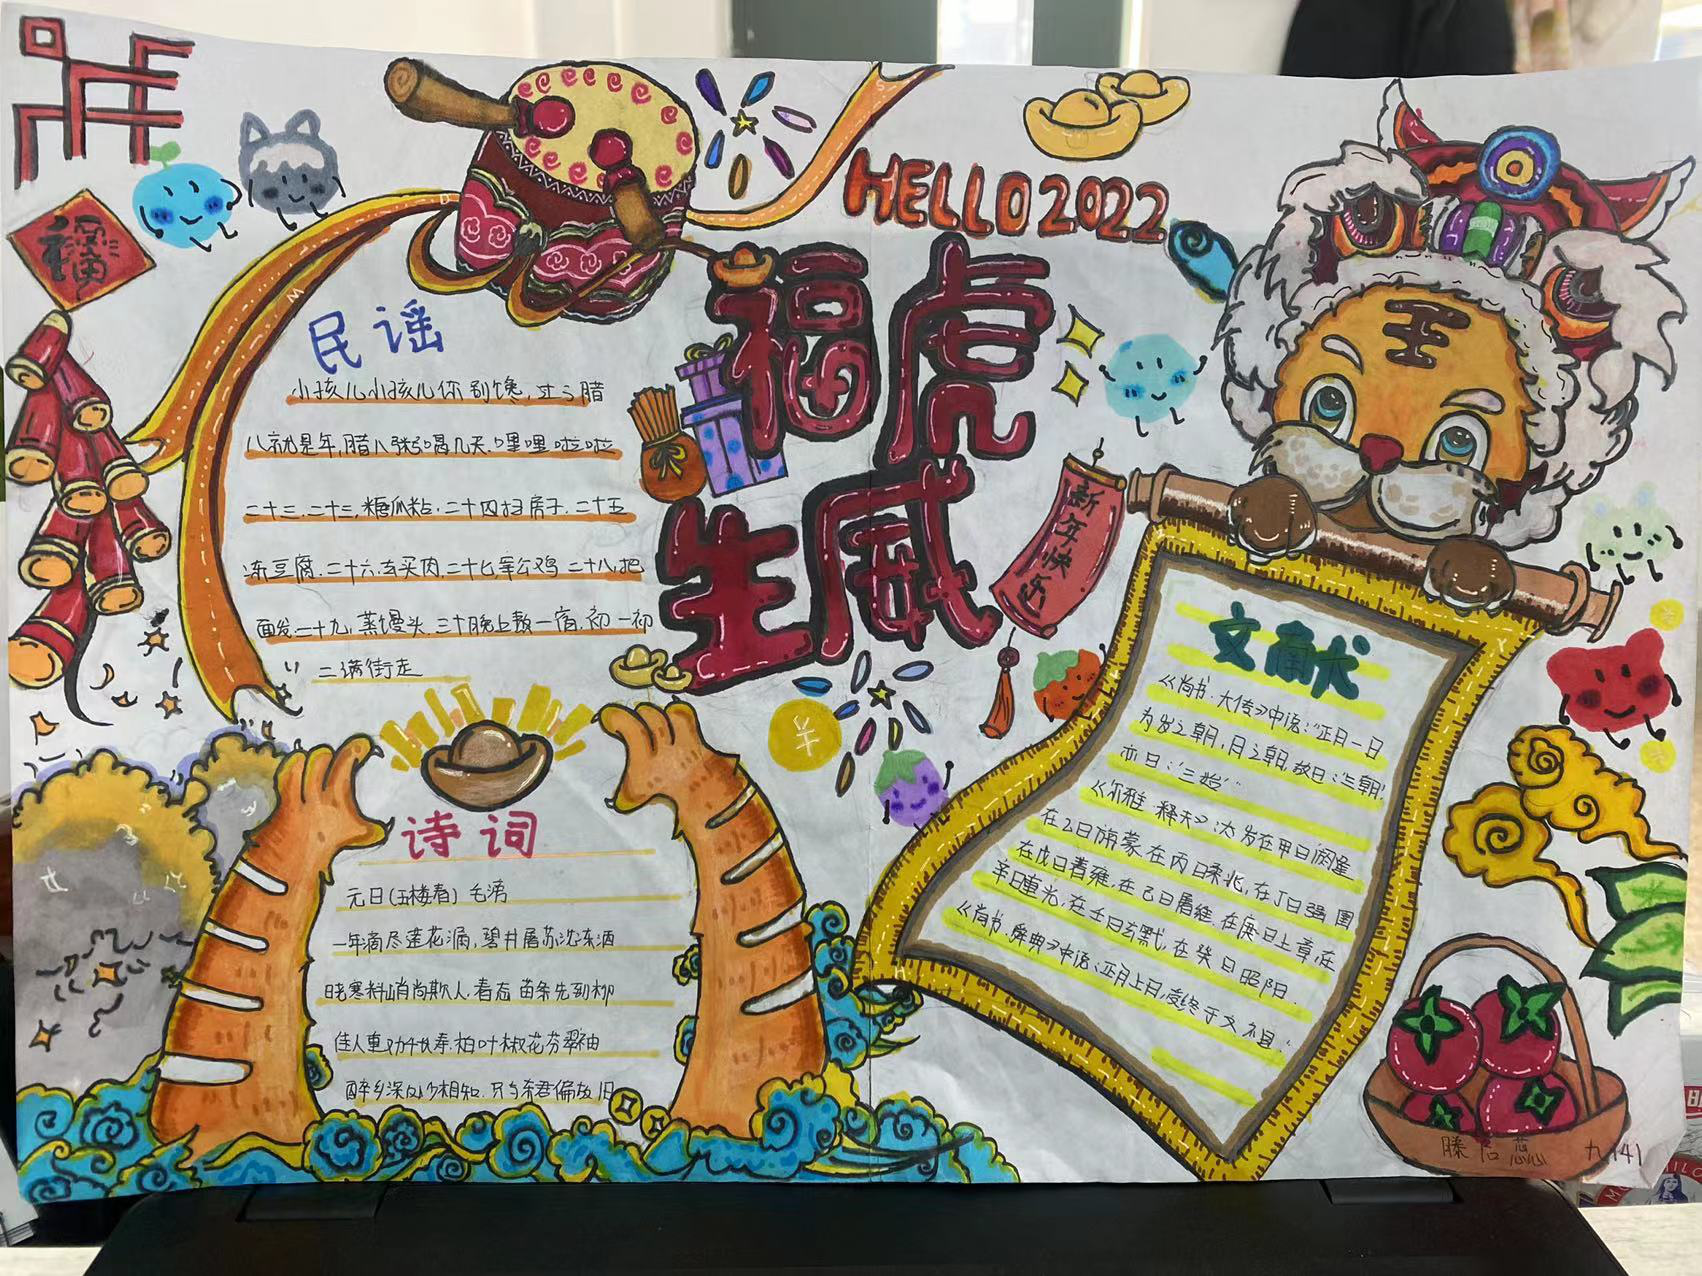 HELLO 2022
福
福虎
生威
新年快乐
民谣
小孩儿小孩儿你别馋，过了腊
八就是年，腊八粥喝几天，哩哩啦啦
二十三，二十三，糖瓜粘，二十四扫房子，二十五
冻豆腐，二十六，去买肉，二十七，宰公鸡 二十八，把
面发，二十九，蒸馒头，三十晚上熬一宿，初一初
二满街走
诗词
元日(玉楼春) 毛滂
一年滴尽莲花漏，碧井屠苏沈冻酒
晓寒料峭尚欺人，春态苗条先到柳
佳人重劝千长寿，柏叶椒花芬翠袖
醉乡深处少相知，只与东君偏故旧
文献
《尚书·大传》中说："正月一日
为岁之朝，月之朝，故曰：三朝，
亦曰："三始"
《尔雅·释天》：太岁在甲曰阏逢
在乙曰旃蒙，在丙曰柔兆，在丁曰强圉
在戊曰著雍，在己曰屠维，在庚曰上章，在
辛曰重光，在壬曰玄黓，在癸曰昭阳．
《尚书·舜典》中说：正月上日，受终于文祖．
滕 蕊 九 141